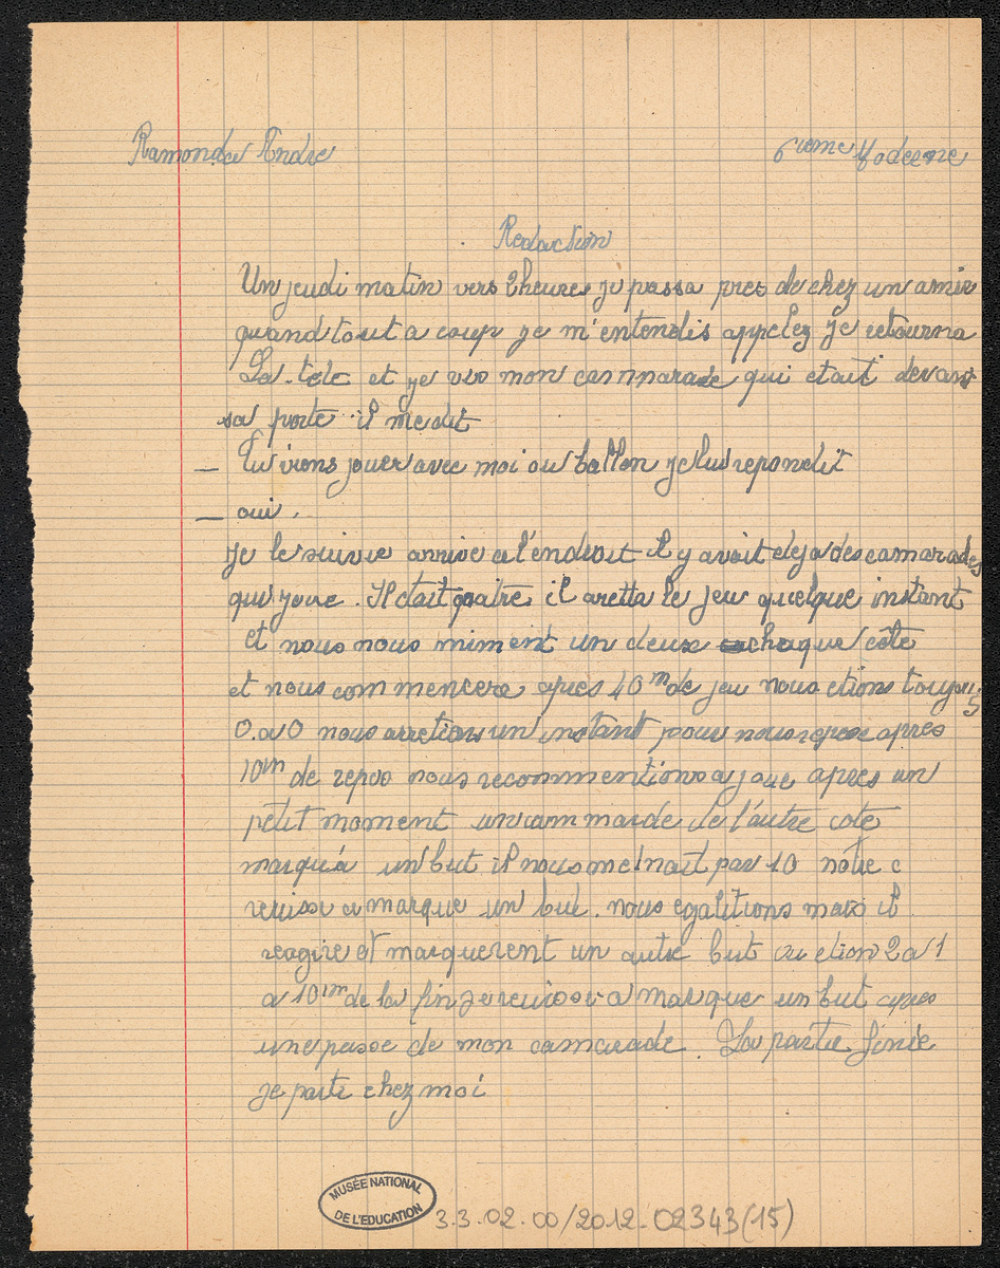 Ramonda Andre 6ieme Moderne
Redaction
Un jeudi matin vers 2heures je passa pres de chez un amie
quand tout a coup je m'entendis appelez je retourna
La tete et je vis mon cammarade qui etait devant
sa porte il me dit
— Tu viens jouer avec moi au ballon je lui repondit
— oui.
Je le suivie arrive a l'endroit il y avait deja des camarades
qui joue. Il etait quatre il aretta le jeu quelque instant
et nous nous miment un deux chaque côte
et nous commencere apres 40m de jeu nous etions toujours
0.a0 nous arretions un instant pour nous repose apres
10m de repos nous recommentions a joue apres un
petit moment un cammarde de l'autre cote
marqua un but il nous menait par 10 notre c
reussi a marque un but. nous egalitions mais il
reagire et marquerent un autre but etion 2 a 1
a 10m de la fin je reussi a marque un but apres
une passe de mon camarade. La partie finie
je parti chez moi
MUSÉE NATIONAL
DE L'EDUCATION
3.3.02.00/2012-02343(15)